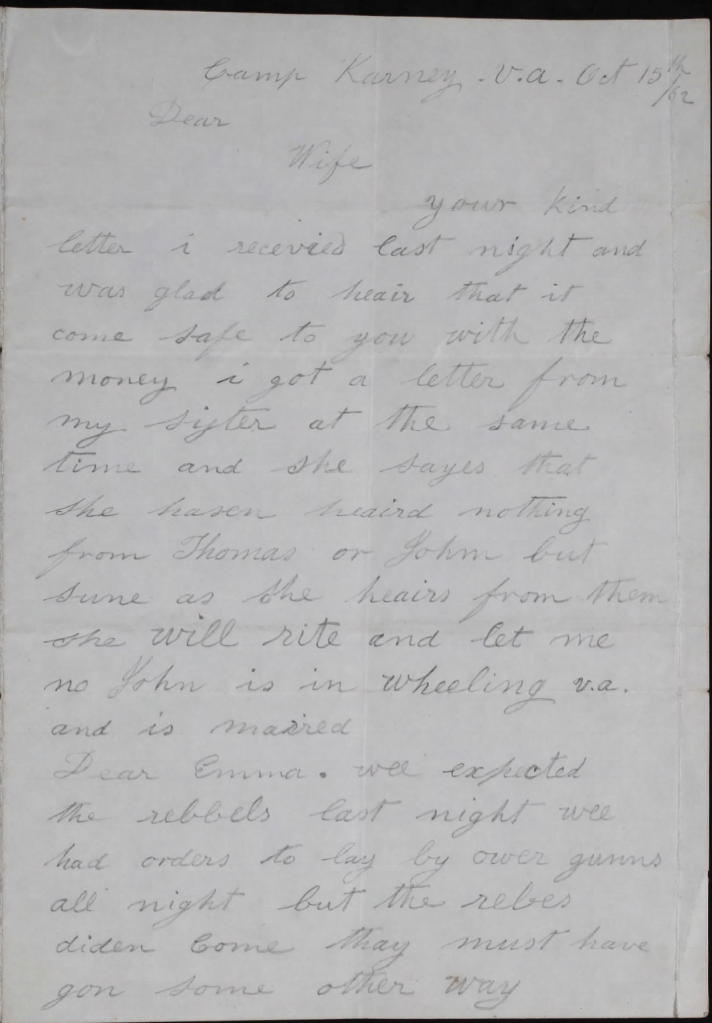 Camp Karney - v.a - Oct 15th /62
Dear
Wife
your kind
letter i recevied last night and
was glad to heair that it
come safe to you with the
money i got a letter from
my sister at the same
time and she sayes that
she hasen heaird nothing
from Thomas or John but
sune as she heairs from them
she will rite and let me
no John is in wheeling v.a.
and is maired
Dear Emma. wee expected
the rebbels last night wee
had orders to lay by ower gunns
all night but the rebes
diden Come thay must have
gon some other way